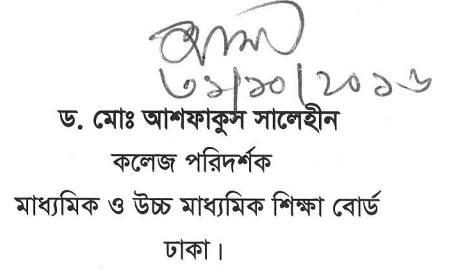 ৩১/১০/২০১৬
ড. মোঃ আশফাকুস সালেহীন
কলেজ পরিদর্শক
মাধ্যমিক ও উচ্চ মাধ্যমিক শিক্ষা বোর্ড
ঢাকা।